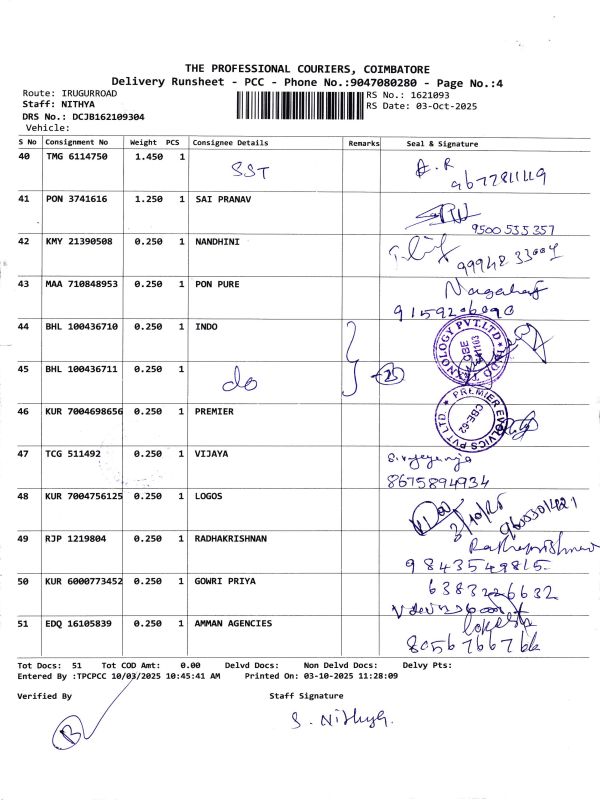 THE PROFESSIONAL COURIERS, COIMBATORE
Delivery Runsheet - PCC - Phone No.:9047080280 - Page No.:4
Route: IRUGURROAD
RS No.: 1621093
Staff: NITHYA
RS Date: 03-Oct-2025
DRS No.: DCJB162109304
Vehicle:
S No Consignment No Weight PCS Consignee Details Remarks Seal & Signature
40 TMG 6114750 1.450 1 SST A.R
9677281119
41 PON 3741616 1.250 1 SAI PRANAV
9500 535 357
42 KMY 21390508 0.250 1 NANDHINI
43 MAA 710848953 0.250 1 PON PURE Nagaraj
9159206090
44 BHL 100436710 0.250 1 INDO
45 BHL 100436711 0.250 1 do 2
46 KUR 7004698656 0.250 1 PREMIER PREMIER EVOLVICS PVT LTD. CBE-62
47 TCG 511492 0.250 1 VIJAYA
8675894934
48 KUR 7004756125 0.250 1 LOGOS 3/10/25
49 RJP 1219804 0.250 1 RADHAKRISHNAN Radhakrishnan
9843549815
50 KUR 6000773452 0.250 1 GOWRI PRIYA 6383226632
51 EDQ 16105839 0.250 1 AMMAN AGENCIES lokesh
8056766766
Tot Docs: 51 Tot COD Amt: 0.00 Delvd Docs: Non Delvd Docs: Delvy Pts:
Entered By :TPCPCC 10/03/2025 10:45:41 AM Printed On: 03-10-2025 11:28:09
Verified By Staff Signature
B S. Nithya.